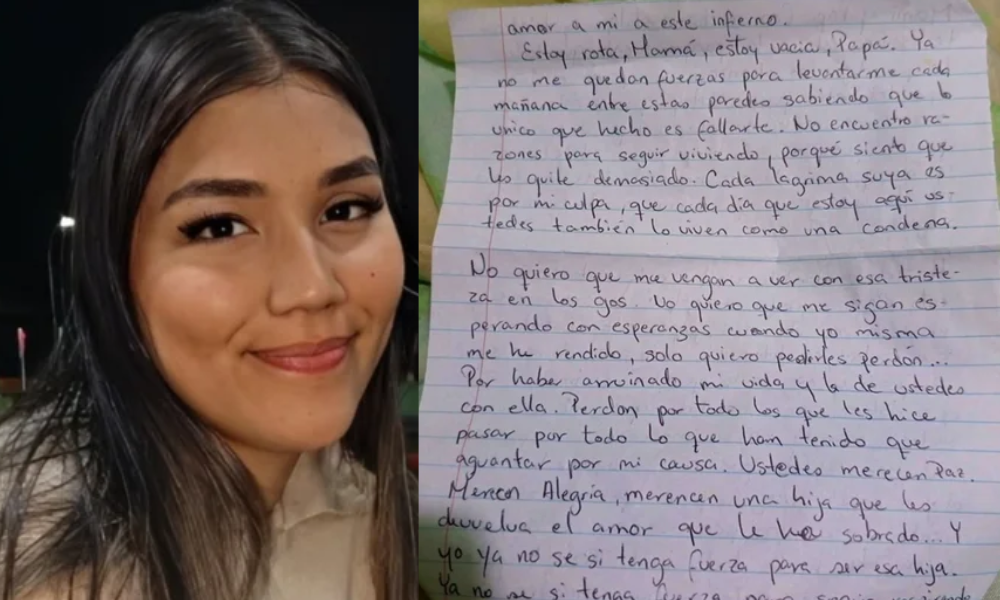 amor a mi a este inferno.
Estoy rota, Mamá, estoy vacia, Papá. Ya
no me quedan fuerzas para levantarme cada
mañana entre estas paredes sabiendo que lo
unico que hecho es fallarte. No encuentro ra-
zones para seguir viviendo, porqué siento que
les quite demasiado. Cada lagrima suya es
por mi culpa, que cada día que estoy aquí us-
tedes también lo viven como una condena.
No quiero que me vengan a ver con esa triste-
za en los ojos. No quiero que me sigan es-
perando con esperanzas cuando yo misma
me he rendido, solo quiero pedirles perdón...
Por haber arruinado mi vida y la de ustedes
con ella. Perdon por todo los que les hice
pasar por todo lo que han tenido que
aguantar por mi causa. Ustedes merecen Paz.
Merecen Alegria, merencen una hija que les
devuelva el amor que le ha sobrado... Y
yo ya no se si tenga fuerza para ser esa hija.
Ya no se si tenga fuerza para